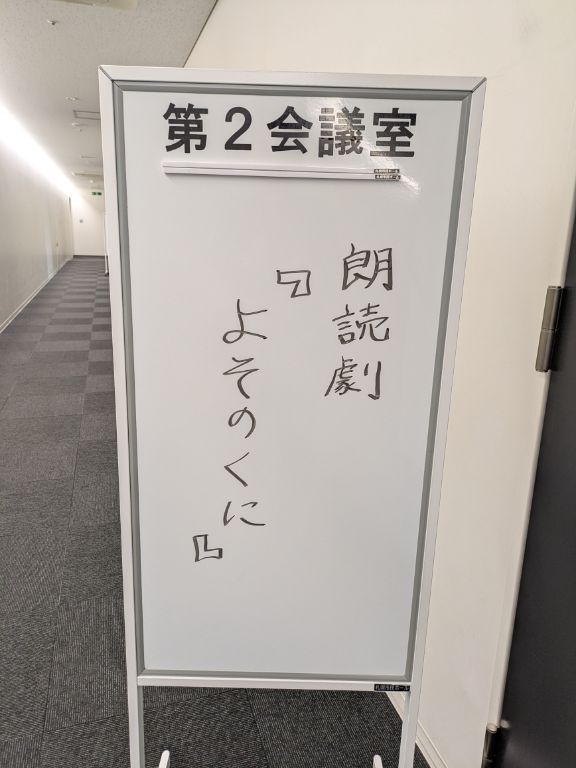 第2会議室
朗読劇
『よそのくに』